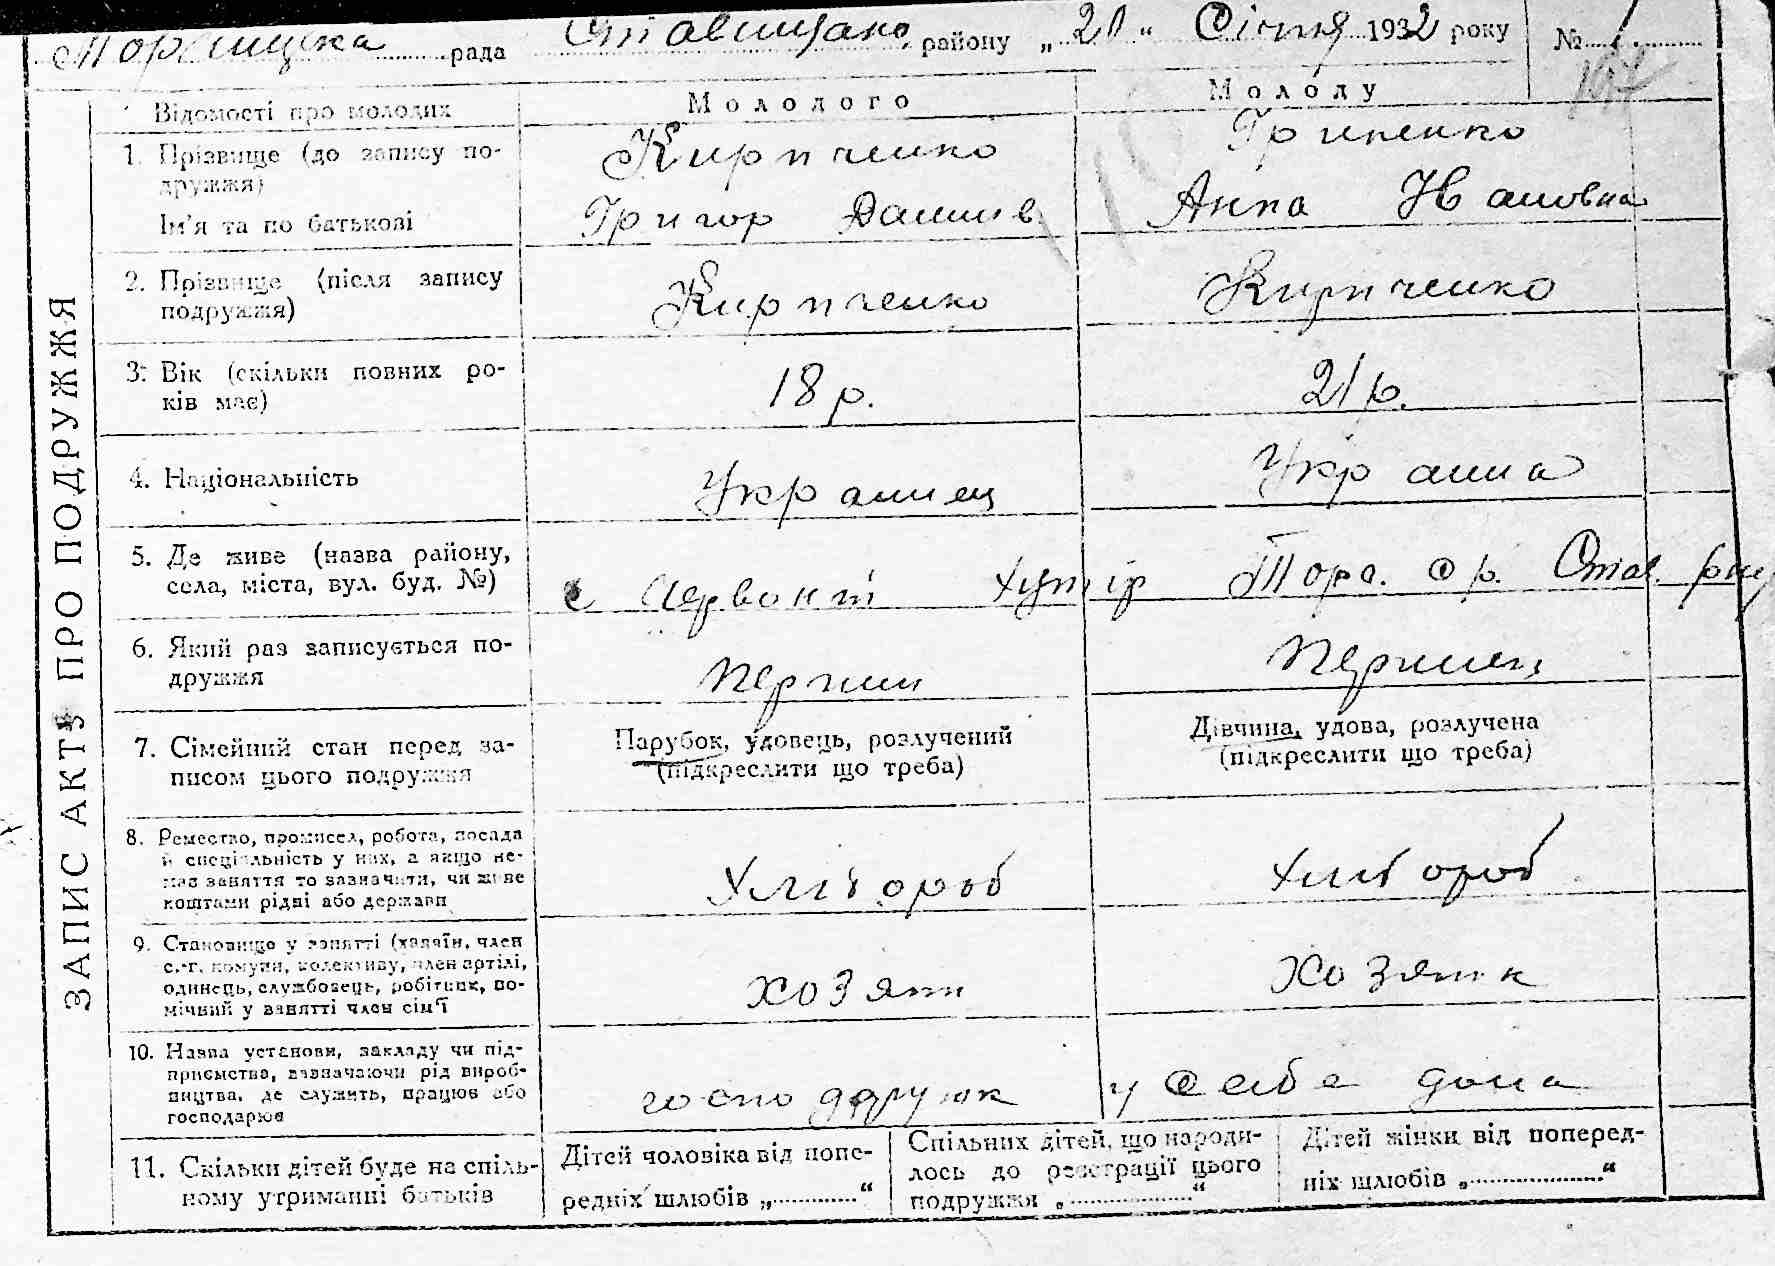 Торчицька рада Ставищанс. району „ 20 “ Січня 1932 року № 1.
107
ЗАПИС АКТУ ПРО ПОДРУЖЖЯ
Відомості про молодих
Молодого
Молоду
1. Прізвище (до запису по-
дружжя)
Кирпченко
Гриненко
Ім’я та по батькові
Григор Данилів
Анна Ивановна
2. Прізвище (після запису
подружжя)
Кирпченко
Кирпченко
3. Вік (скільки повних ро-
ків має)
18 р.
21 р.
4. Національність
Украинец
Украина
5. Де живе (назва району,
села, міста, вул. буд. №)
с Червоний Хутір Торч. С/р. Став. р-ну
6. Який раз записується по-
дружжя
перший
7. Сімейний стан перед за-
писом цього подружжя
Парубок, удовець, розлучений
(підкреслити що треба)
Дівчина, удова, розлучена
(підкреслити що треба)
8. Ремество, промисел, робота, посада
й спеціяльність у них, а якщо не-
має заняття то зазначити, чи живе
коштами рідні або держави
Хлібороб
Хлібороб
9. Становище у занятті (хазяїн, член
с.-г. комуни, колективу, член артілі,
одинець, службовець, робітник, по-
мічний у занятті член сім’ї
хозяин
хозяйк
10. Назва установи, закладу чи під-
приємства, зазначаючи рід вироб-
ництва, де служить, працює або
господарює
у себе дома
11. Скільки дітей буде на спіль-
ному утриманні батьків
Дітей чоловіка від попе-
редніх шлюбів „..............“
Спільних дітей, що народи-
лось до реєстрації цього
подружжя „....................“
Дітей жінки від поперед-
ніх шлюбів „......................“